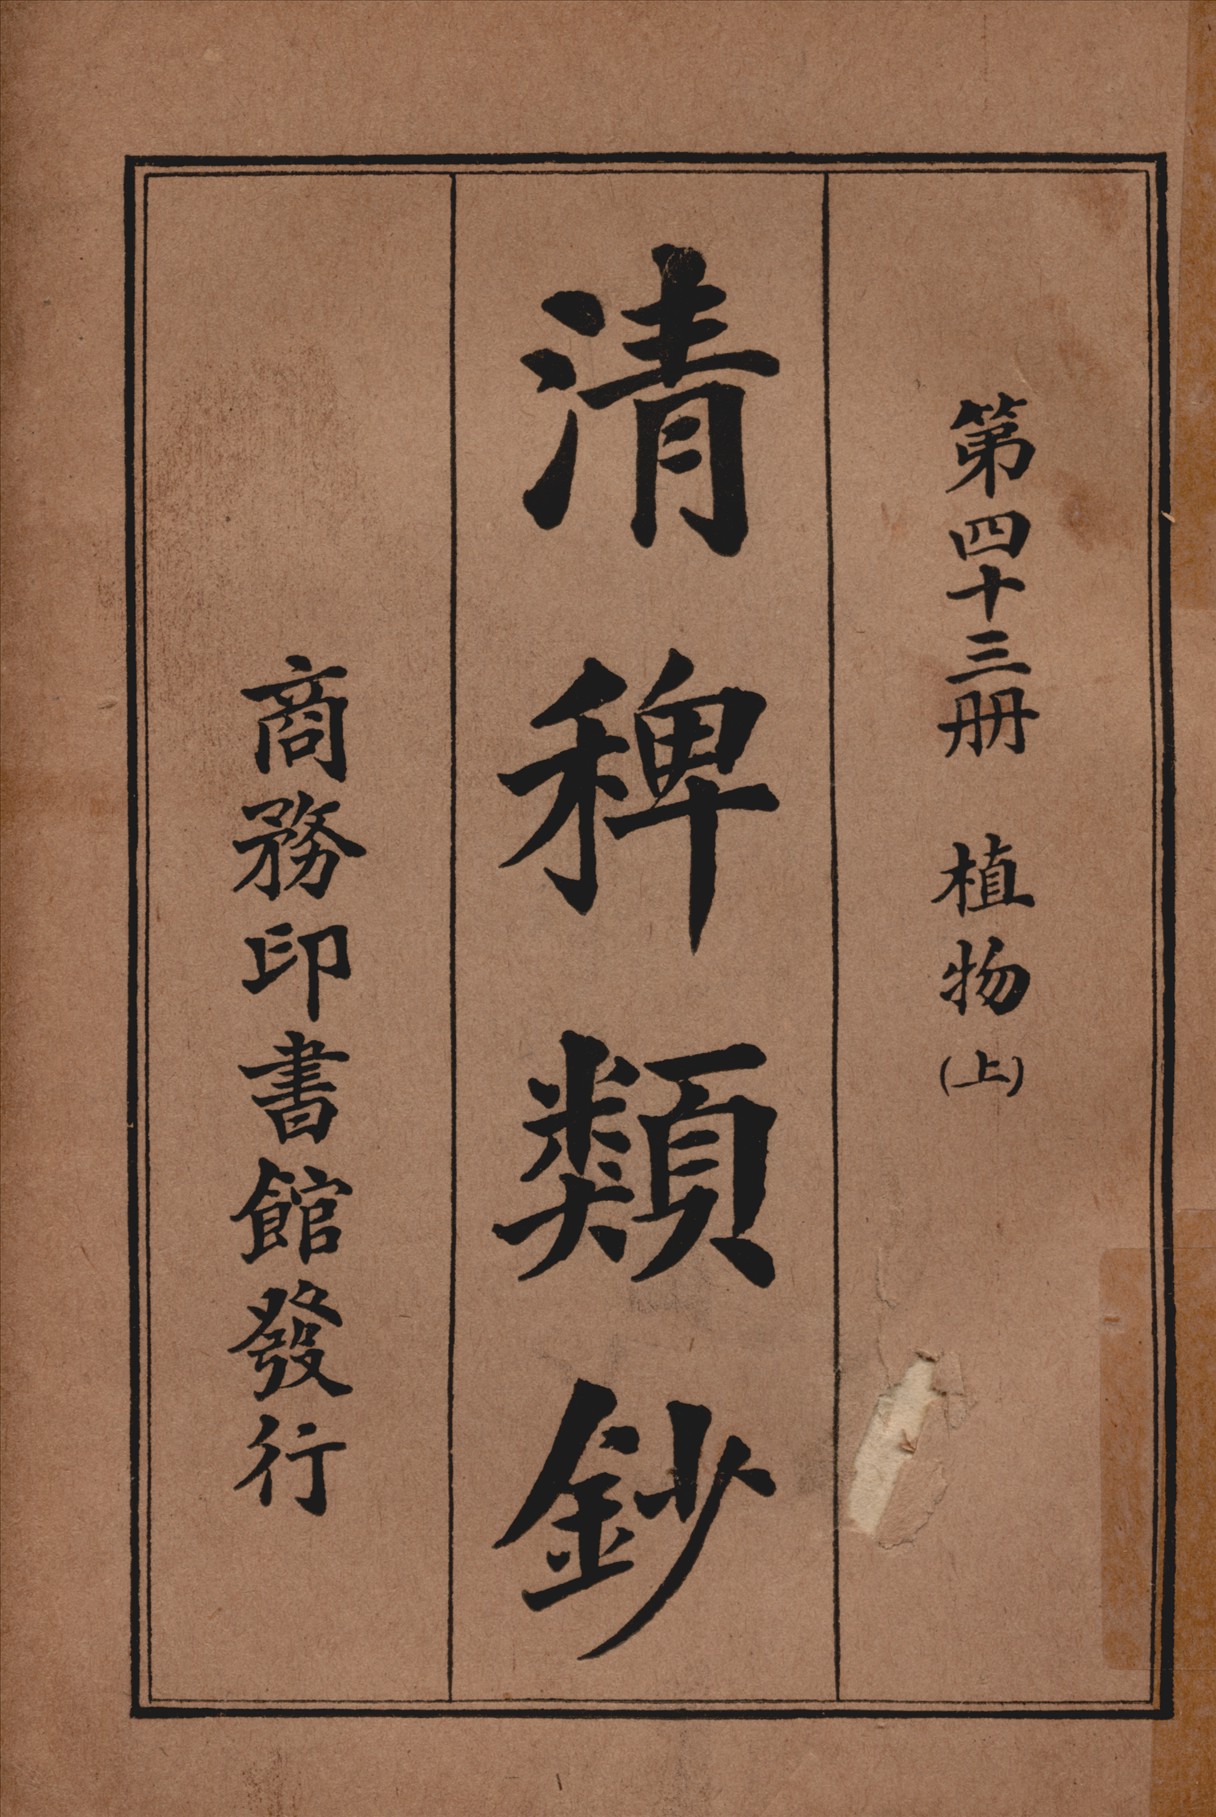 第四十三册 植物(上)
清稗類鈔
商務印書館發行